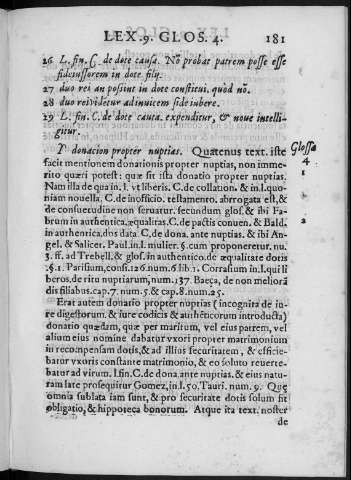 LEX.9. GLOS. 4. 181
26 L. fin. C. de dote causa. Nō probat patrem posse esse
fideiussorem in dote filij.
27 duo rei an possint in dote constitui, quod nō.
28 duo rei videtur adinuicem fide iubere.
29 L. fin. C. de dote cauta. expenditur, & noue intelli-
gitur.
Y donacion propter nuptias. Quatenus text. iste
Glossa
4
facit mentionem donationis propter nuptias, non imme-
rito quæri potest: quæ sit ista donatio propter nuptias.
1
Nam illa de qua in.l. vt liberis. C. de collation. & in.l.quo-
niam nouella. C. de inofficio. testamento. abrrogata est, &
de consuetudine non seruatur. secundum glos. & ibi Fa-
brum in authentica. æqualitas. C. de pactis conuen. & Bald.
2
in authentica. dos data. C. de dona. ante nuptias. & ibi An-
gel. & Salicet. Paul. in l. mulier. §. cum proponeretur. nu.
3. ff. ad Trebell. & glos. in authentico. de æqualitate dotis
.§.1. Parisium, cons. 126. num. 6 lib 1. Corrasium in l. qui li
beros. de ritu nuptiarum, num. 137. Baeça, de non meliorā
dis filiabus. cap. 7. num. 5. & cap. 8. num. 25.
Erat autem donatio propter nuptias (incognita de iu-
re digestorum. & iure codicis & authēticorum introducta)
donatio quædam, quæ per maritum, vel eius patrem, vel
alium eius nomine dabatur vxori propter matrimonium
in recompensam dotis, & ad illius securitatem, & efficie-
batur vxoris constante matrimonio, & eo soluto reuerte-
batur ad virum. l. fin. C. de dona. ante nuptias. & eius natu-
ram late prosequitur Gomez, in l. 50. Tauri. num. 9. Quę
omnia sublata iam sunt, & pro securitate dotis solum fit
obligatio, & hippoteca bonorum. Atque ita text. noster
de